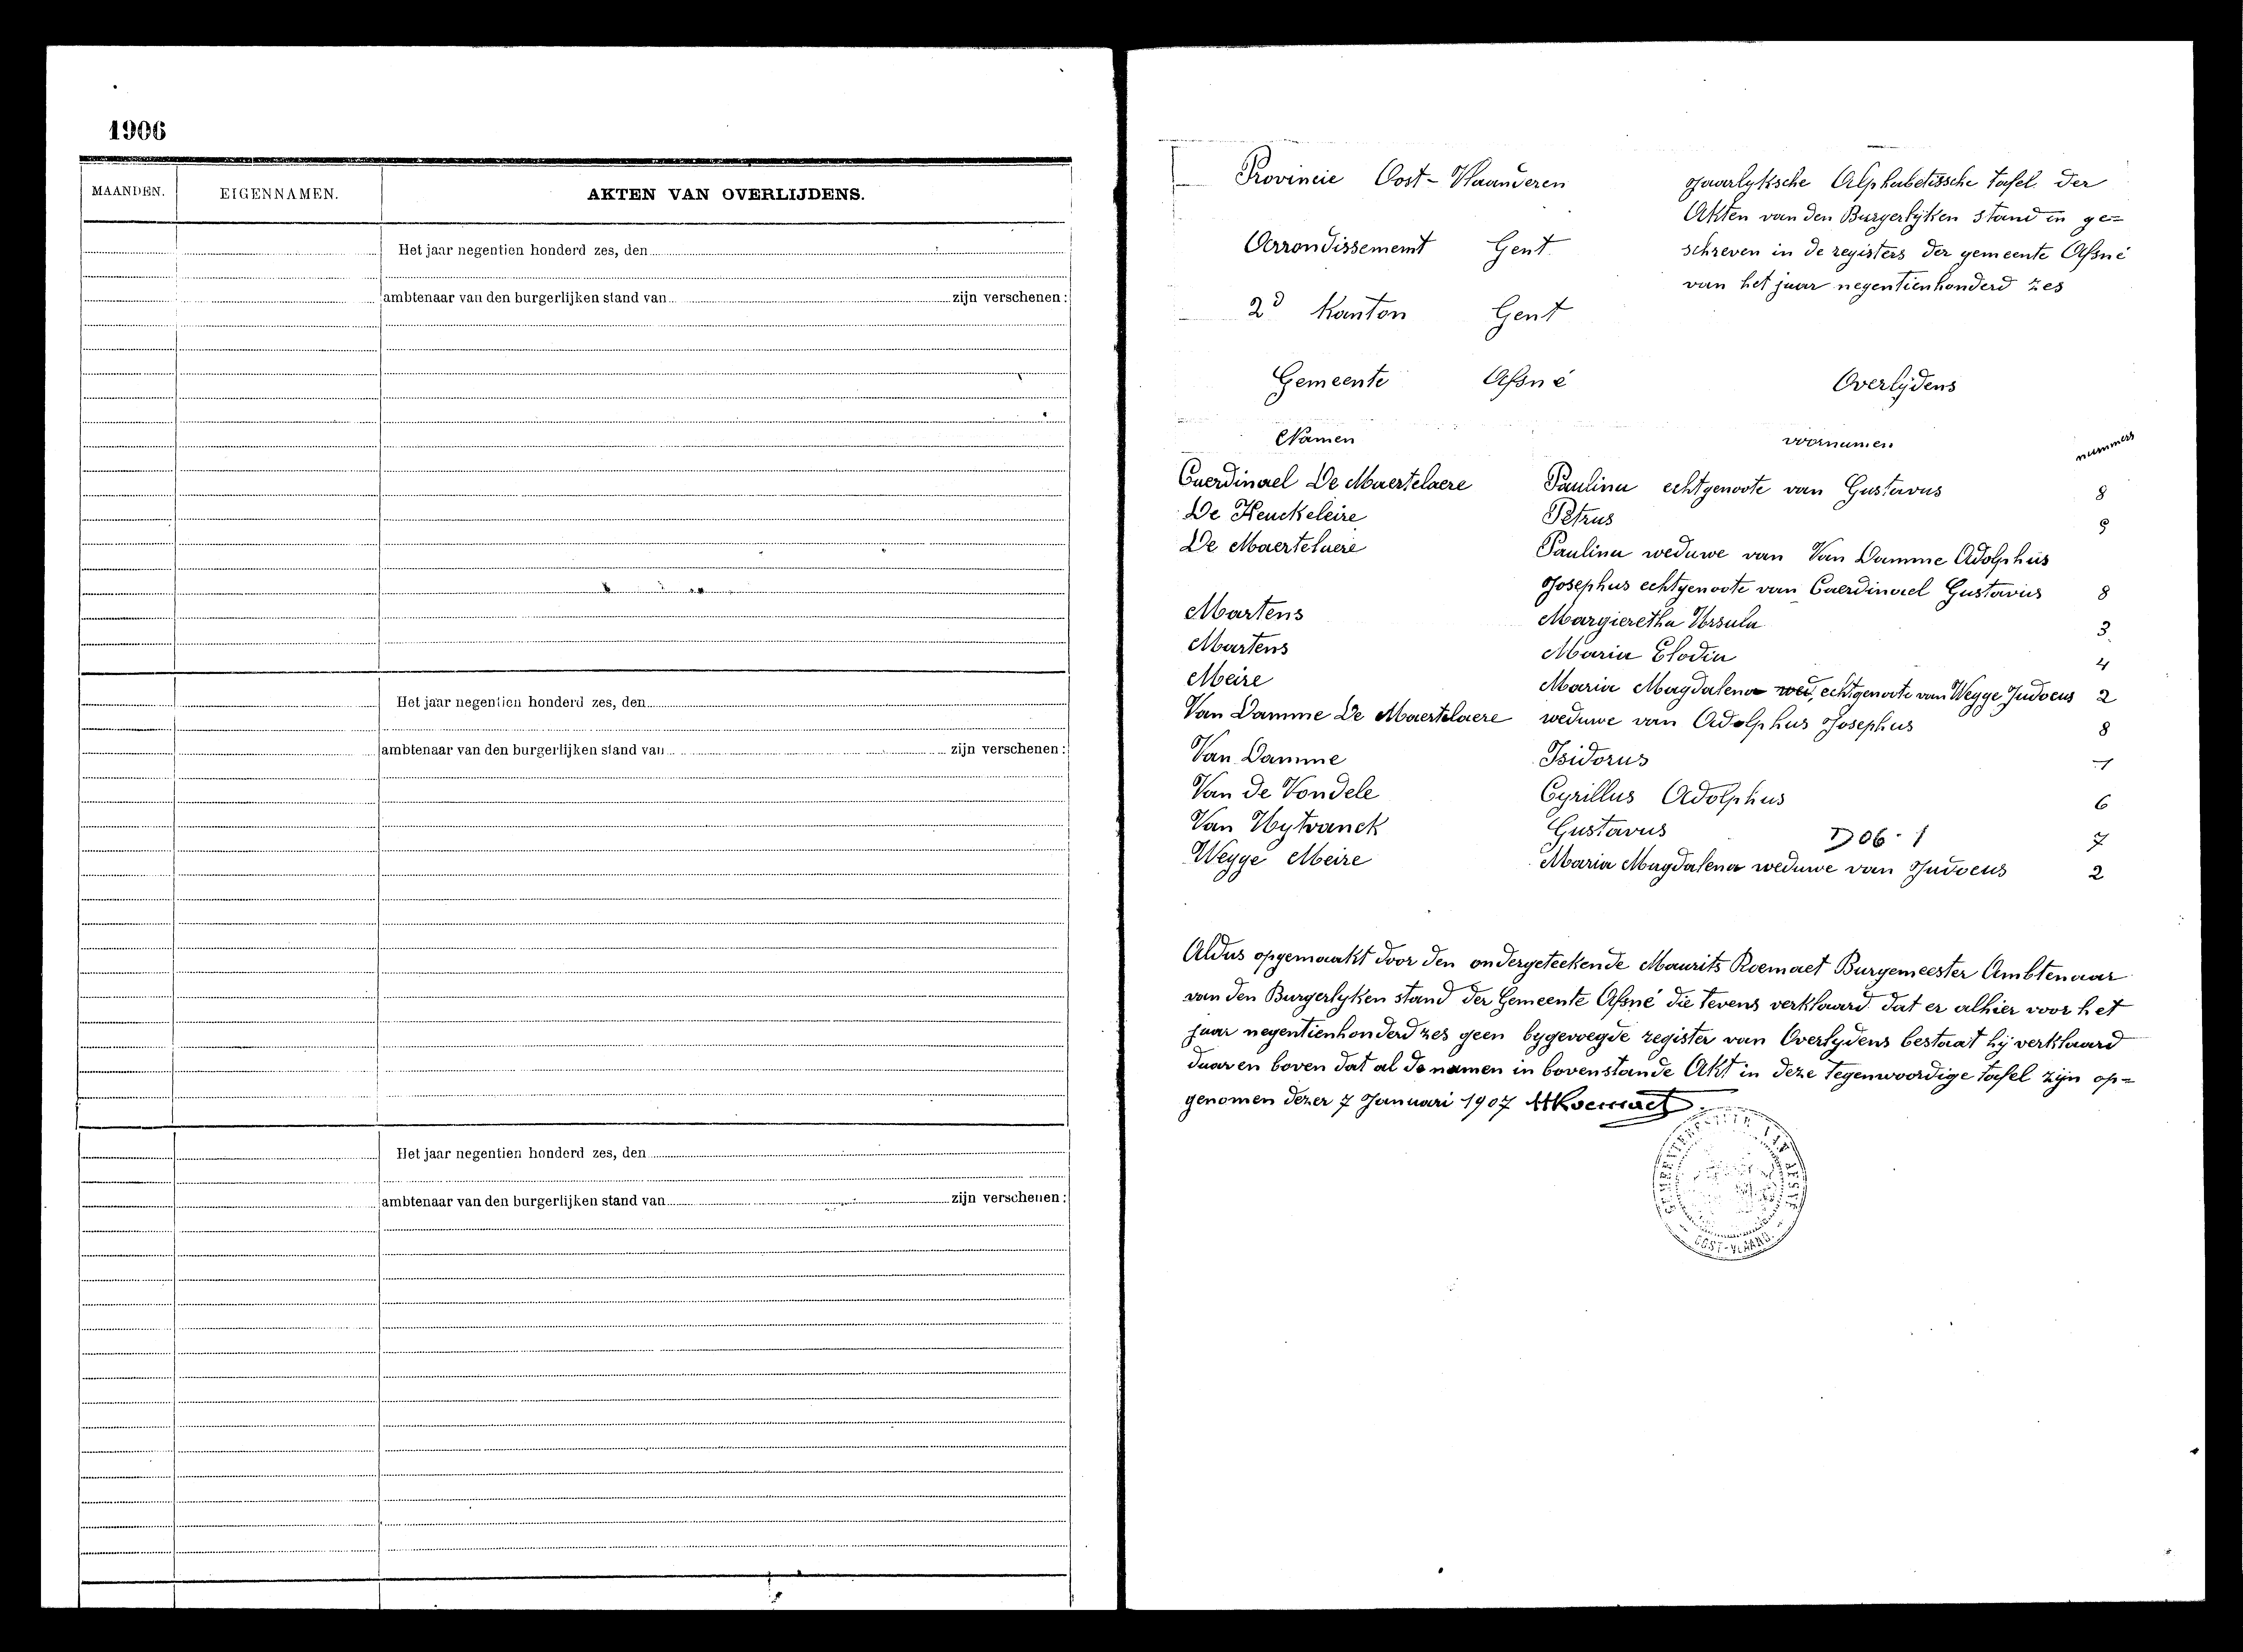 1906
MAANDEN. EIGENNAMEN. AKTEN VAN OVERLIJDENS.
Het jaar negentien honderd zes, den
ambtenaar van den burgerlijken stand van zijn verschenen:
Het jaar negentien honderd zes, den
ambtenaar van den burgerlijken stand van zijn verschenen:
Het jaar negentien honderd zes, den
ambtenaar van den burgerlijken stand van zijn verschenen:
Provincie Oost-Vlaanderen
Arrondissement Gent
2d Kanton Gent
Gemeente Afsné
Jaarlyksche Alphabetissche tafel der
Akten van den Burgerlyken stand in ge=
schreven in de registers der gemeente Afsné
van het jaar negentienhonderd zes
Overlijdens
Namen voornamen nummers
Caerdinael De Maertelaere Paulina echtgenoote van Gustavus 8
De Keuckeleire Petrus 5
De Maertelaere Paulina weduwe van Van Damme Adolphus
Josephus echtgenoote van Caerdinael Gustavus 8
Martens Margieretha Ursula 3
Martens Maria Elodia 4
Meire Maria Magdalena wed, echtgenoote van Wegge Judocus 2
Van Damme De Maertelaere weduwe van Adolphus Josephus 8
Van Damme Isidorus 1
Van de Vondele Cyrillus Adolphus 6
Van Uytvanck Gustavus D06-1 7
Wegge Meire Maria Magdalena weduwe van Judocus 2
Aldus opgemaakt door den ondergeteekende Maurits Roemaet Burgemeester Ambtenaar
van den Burgerlyken stand der Gemeente Afsné die tevens verklaard dat er alhier voor het
jaar negentienhonderd zes geen bygevoegde register van Overlydens bestaat hij verklaard
daar en boven dat al de namen in bovenstande Akt in deze tegenwoordige tafel zijn op=
genomen dezer 7 Januari 1907 MRoemaet
OOST-VLAAND.